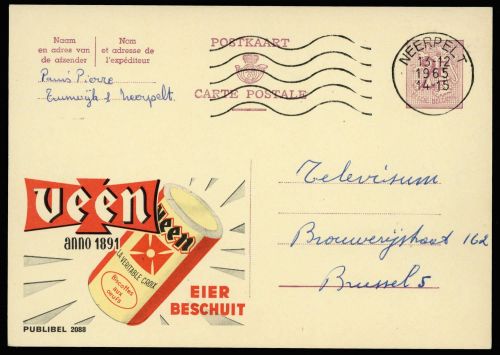 Naam
en adres van
de afzender
Nom
et adresse de
l'expéditeur
POSTKAART
CARTE POSTALE
NEERPELT
13-12
1965
14-15
Pierre
Neerpelt
véén
anno 1891
veen
LA VÉRITABLE CROIX
Biscottes
aux
oeufs
EIER
BESCHUIT
PUBLIBEL 2088
Televisum
Brouwerijstraat 162
Brussel 5